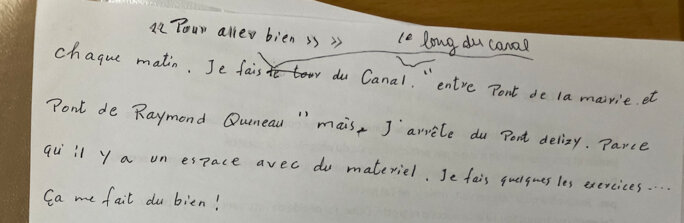 << Pour aller bien >> >> le long du canal
chaque matin. Je fais le tour du Canal. "entre Pont de la mairie et
Pont de Raymond Queneau" mais, J'arrête du Pont delizy. Parce
qu'il y a un espace avec du materiel. Je fais quelques les exercices ....
Ça me fait du bien !